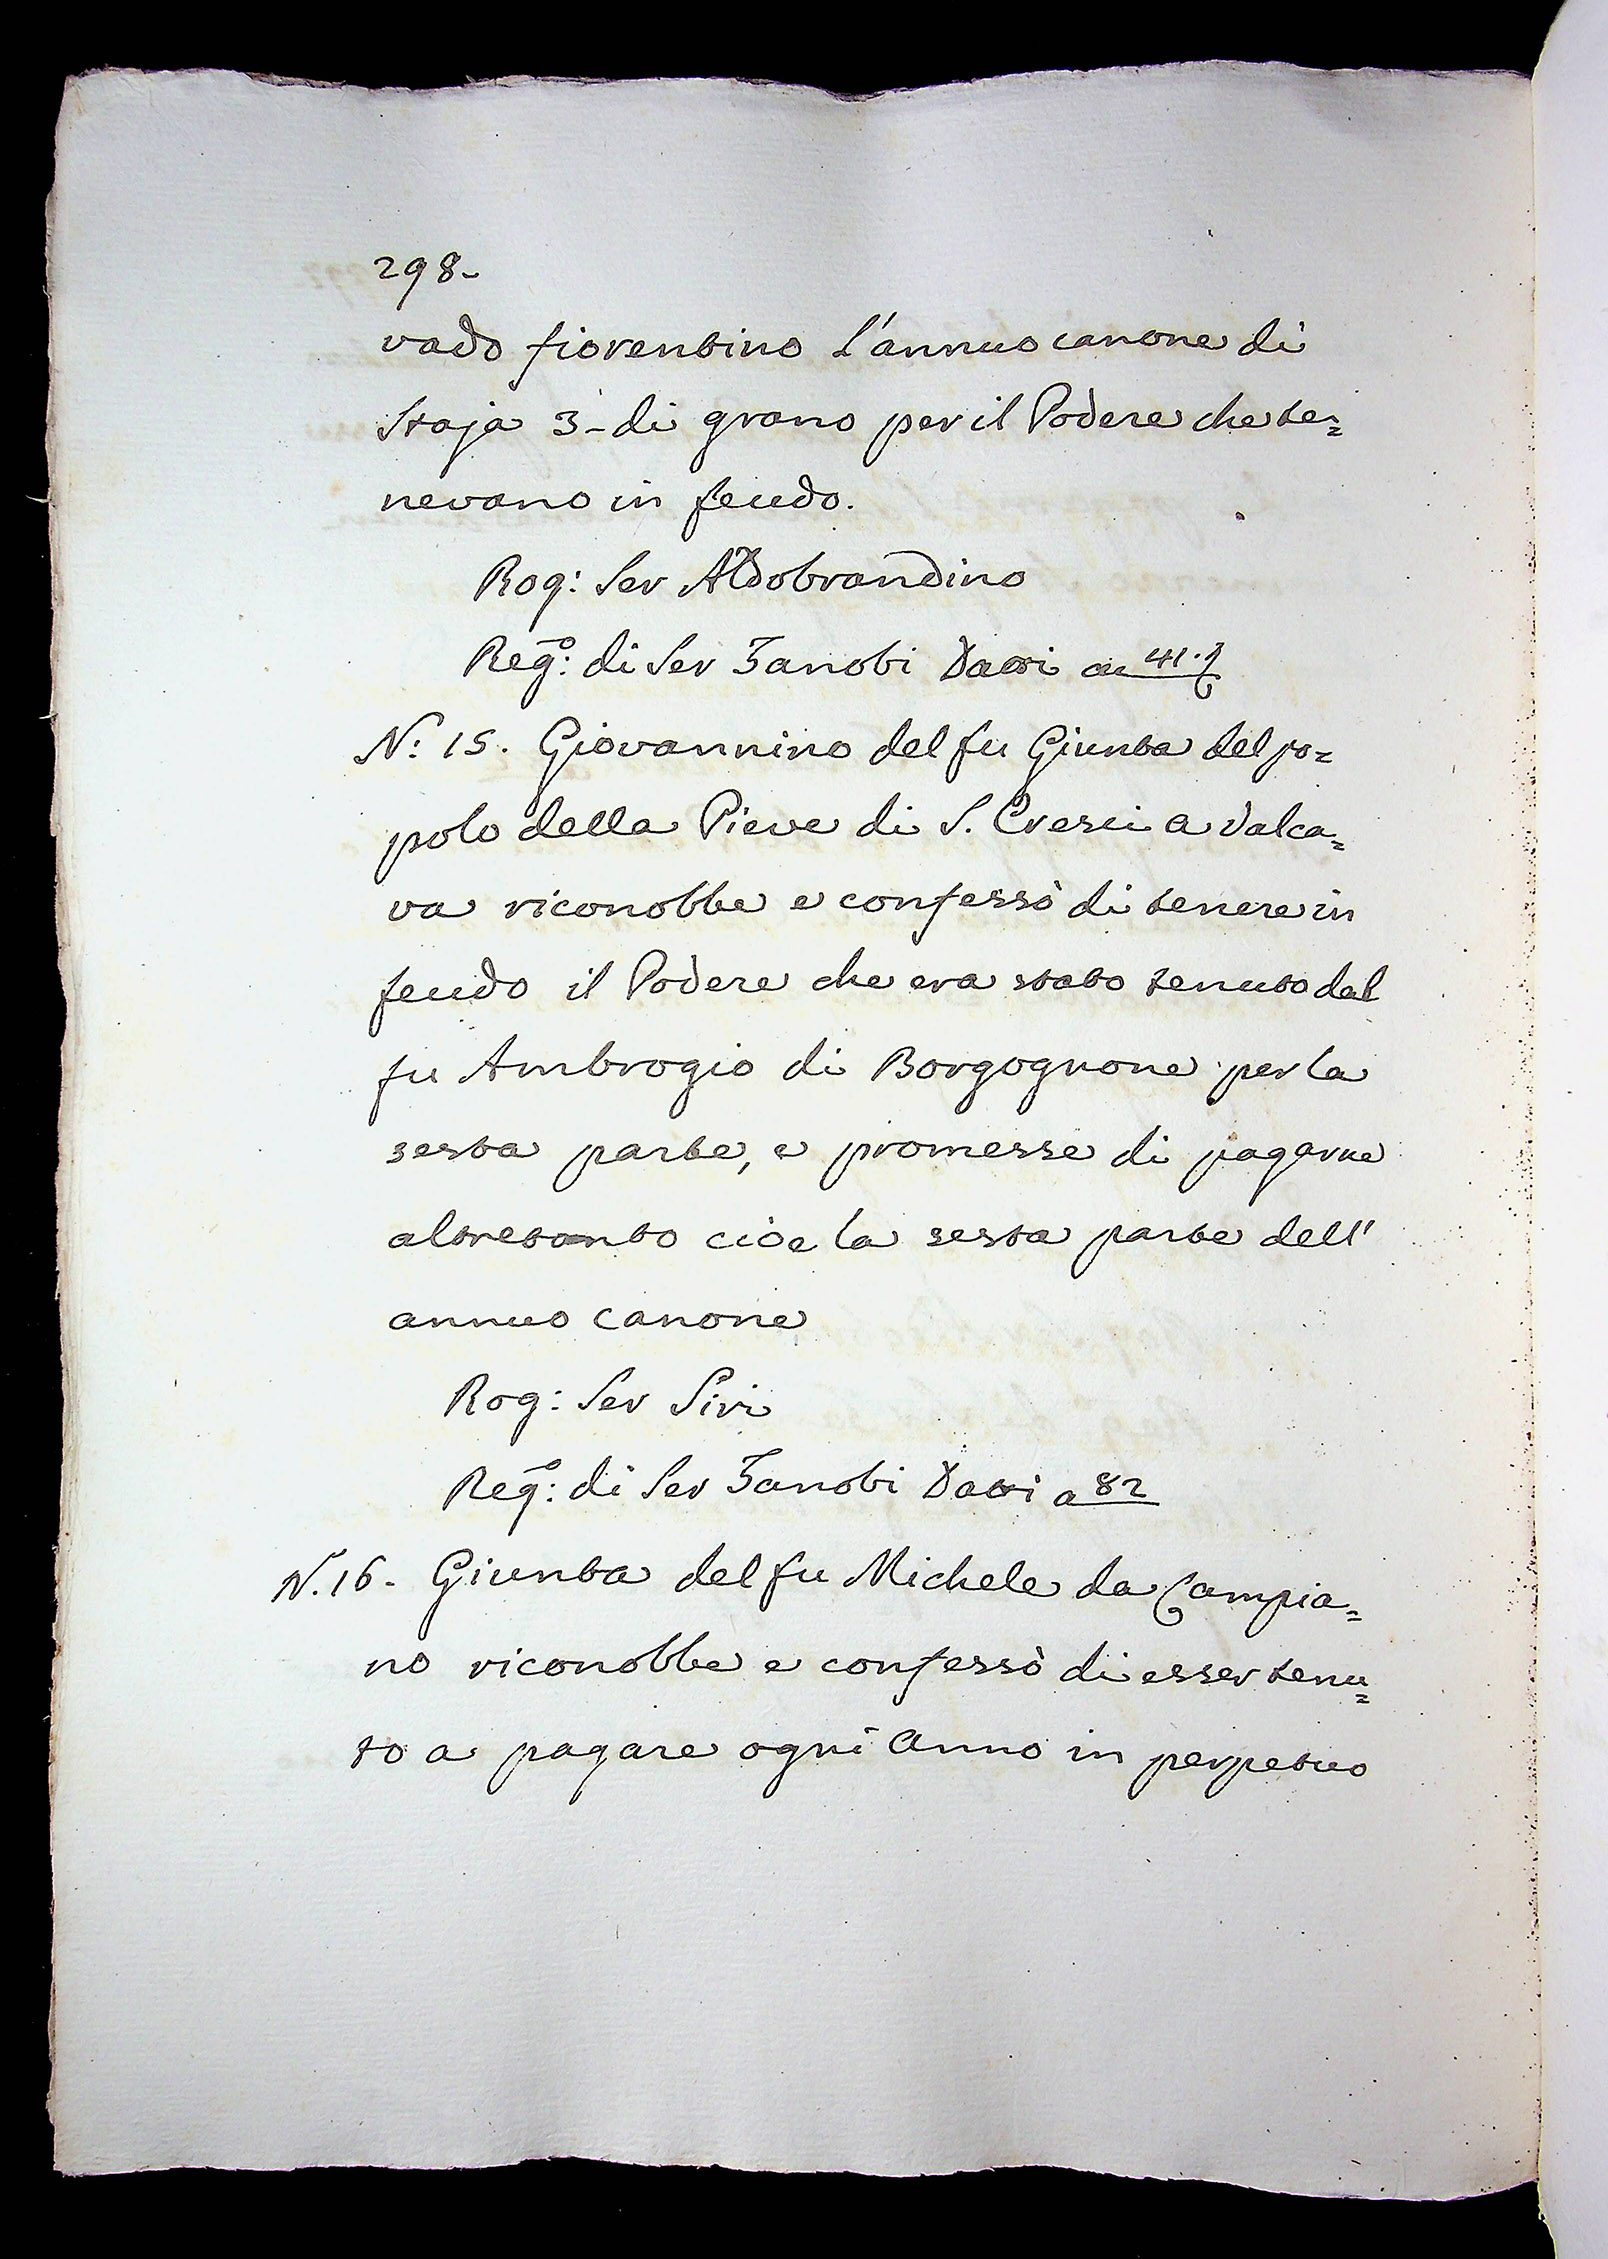 298-
vado fiorentino l'annuo canone di
Staja 3- di grano per il Podere che te=
nevano in feudo.
Rog: Ser Aldobrandino
Regº: di Ser Zanobi Dassi a 41.
N: 15. Giovannino del fu Giunta del po=
polo della Pieve di S. Cresci a Valca=
va riconobbe e confessò di tenere in
feudo il Podere che era stato tenuto dal
fu Ambrogio di Borgognone per la
sesta parte, e promesse di pagarne
altretanto cioè la sesta parte dell'
annuo canone
Rog: Ser Siri
Regº: di Ser Zanobi Dassi a 82
N. 16- Giunta del fu Michele da Campia=
no riconobbe e confessò di esser tenu=
to a pagare ogni Anno in perpetuo